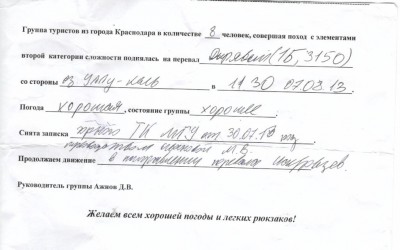 Группа туристов из города Краснодара в количестве 8 человек, совершая поход с элементами
второй категории сложности поднялась на перевал (1Б, 3150)
со стороны оз. в 11 30 07.08.13.
Погода хорошая, состояние группы хорошее
Снята записка ТК МГУ от 30.07.13 под
руководством М.В.
Продолжаем движение в направлении перевала
Руководитель группы Ажиов Д.В.
Желаем всем хорошей погоды и легких рюкзаков!